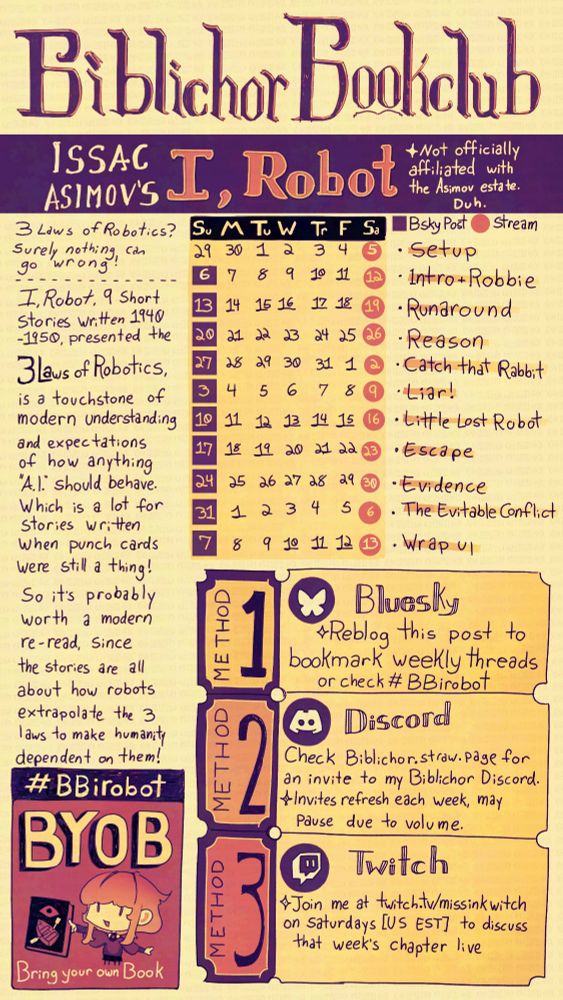 Biblichor Bookclub
ISSAC
ASIMOV'S
I, Robot
✦Not officially
affiliated with
the Asimov estate.
Duh.
3 Laws of Robotics?
Surely nothing can
go wrong!
I, Robot, 9 Short
Stories written 1940
-1950, presented the
3 Laws of Robotics,
is a touchstone of
modern understanding
and expectations
of how anything
"A.I." should behave.
Which is a lot for
stories written
when punch cards
were still a thing!
So it's probably
worth a modern
re-read, since
the stories are all
about how robots
extrapolate the 3
laws to make humanity
dependent on them!
#BBirobot
BYOB
Bring your own Book
Su M Tu W Tr F Sa
29 30 1 2 3 4 5
6 7 8 9 10 11 12
13 14 15 16 17 18 19
20 21 22 23 24 25 26
27 28 29 30 31 1 2
3 4 5 6 7 8 9
10 11 12 13 14 15 16
17 18 19 20 21 22 23
24 25 26 27 28 29 30
31 1 2 3 4 5 6
7 8 9 10 11 12 13
Bsky Post Stream
• Setup
• Intro + Robbie
• Runaround
• Reason
• Catch that Rabbit
• Liar!
• Little Lost Robot
• Escape
• Evidence
• The Evitable Conflict
• Wrap up
METHOD 1
Bluesky
✦Reblog this post to
bookmark weekly threads
or check #BBirobot
METHOD 2
Discord
Check Biblichor.straw.page for
an invite to my Biblichor Discord.
✦Invites refresh each week, may
Pause due to volume.
METHOD 3
Twitch
✦Join me at twitch.tv/missinkwitch
on Saturdays [US EST] to discuss
that week's chapter live